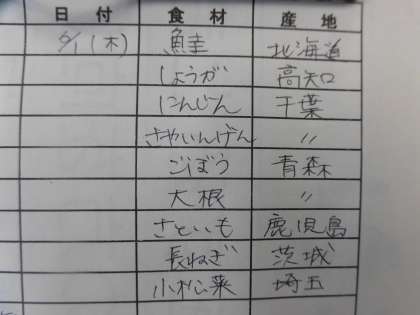 日付 食材 産地
6/1(木) 鮭 北海道
しょうが 高知
にんじん 千葉
さやいんげん 〃
ごぼう 青森
大根 〃
さといも 鹿児島
長ねぎ 茨城
小松菜 埼玉